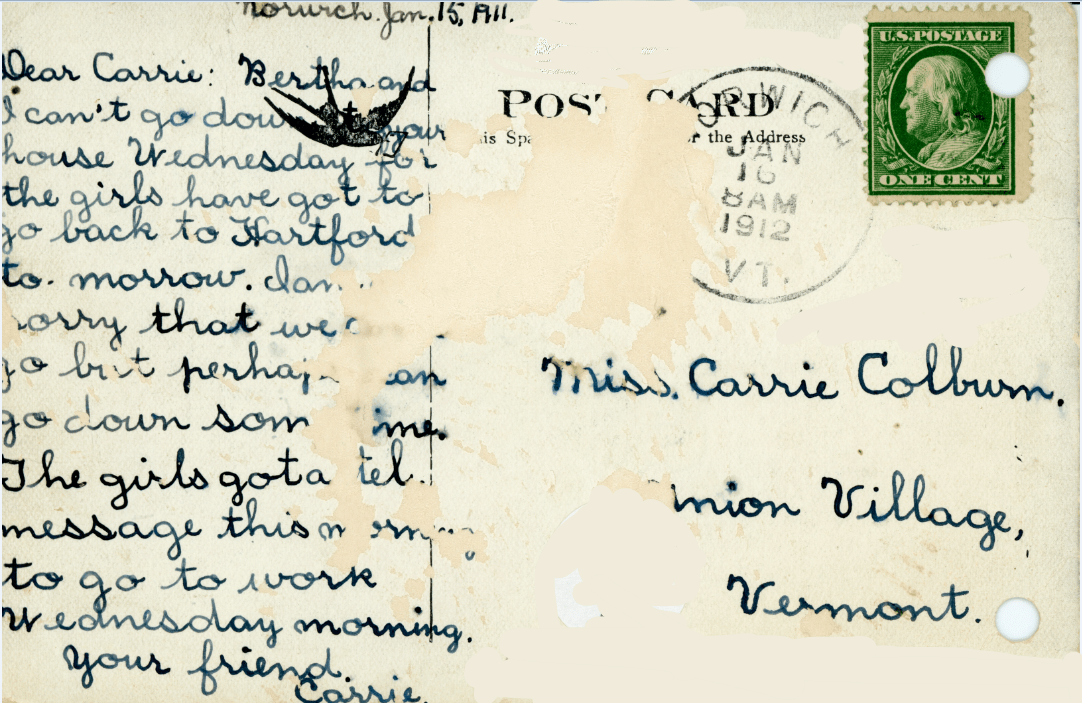 Norwich. Jan. 15, 1911.
Dear Carrie: Bertha and
I can't go down to your
house Wednesday for
the girls have got to
go back to Hartford
to. morrow. I am
sorry that we
go but perhaps can
go down some time.
The girls got a tel.
message this morning
to go to work
Wednesday morning.
Your friend.
Carrie.
POST CARD
This Space for the Address
NORWICH
JAN
16
8AM
1912
VT.
U.S. POSTAGE
ONE CENT
Miss. Carrie Colburn.
Union Village,
Vermont.